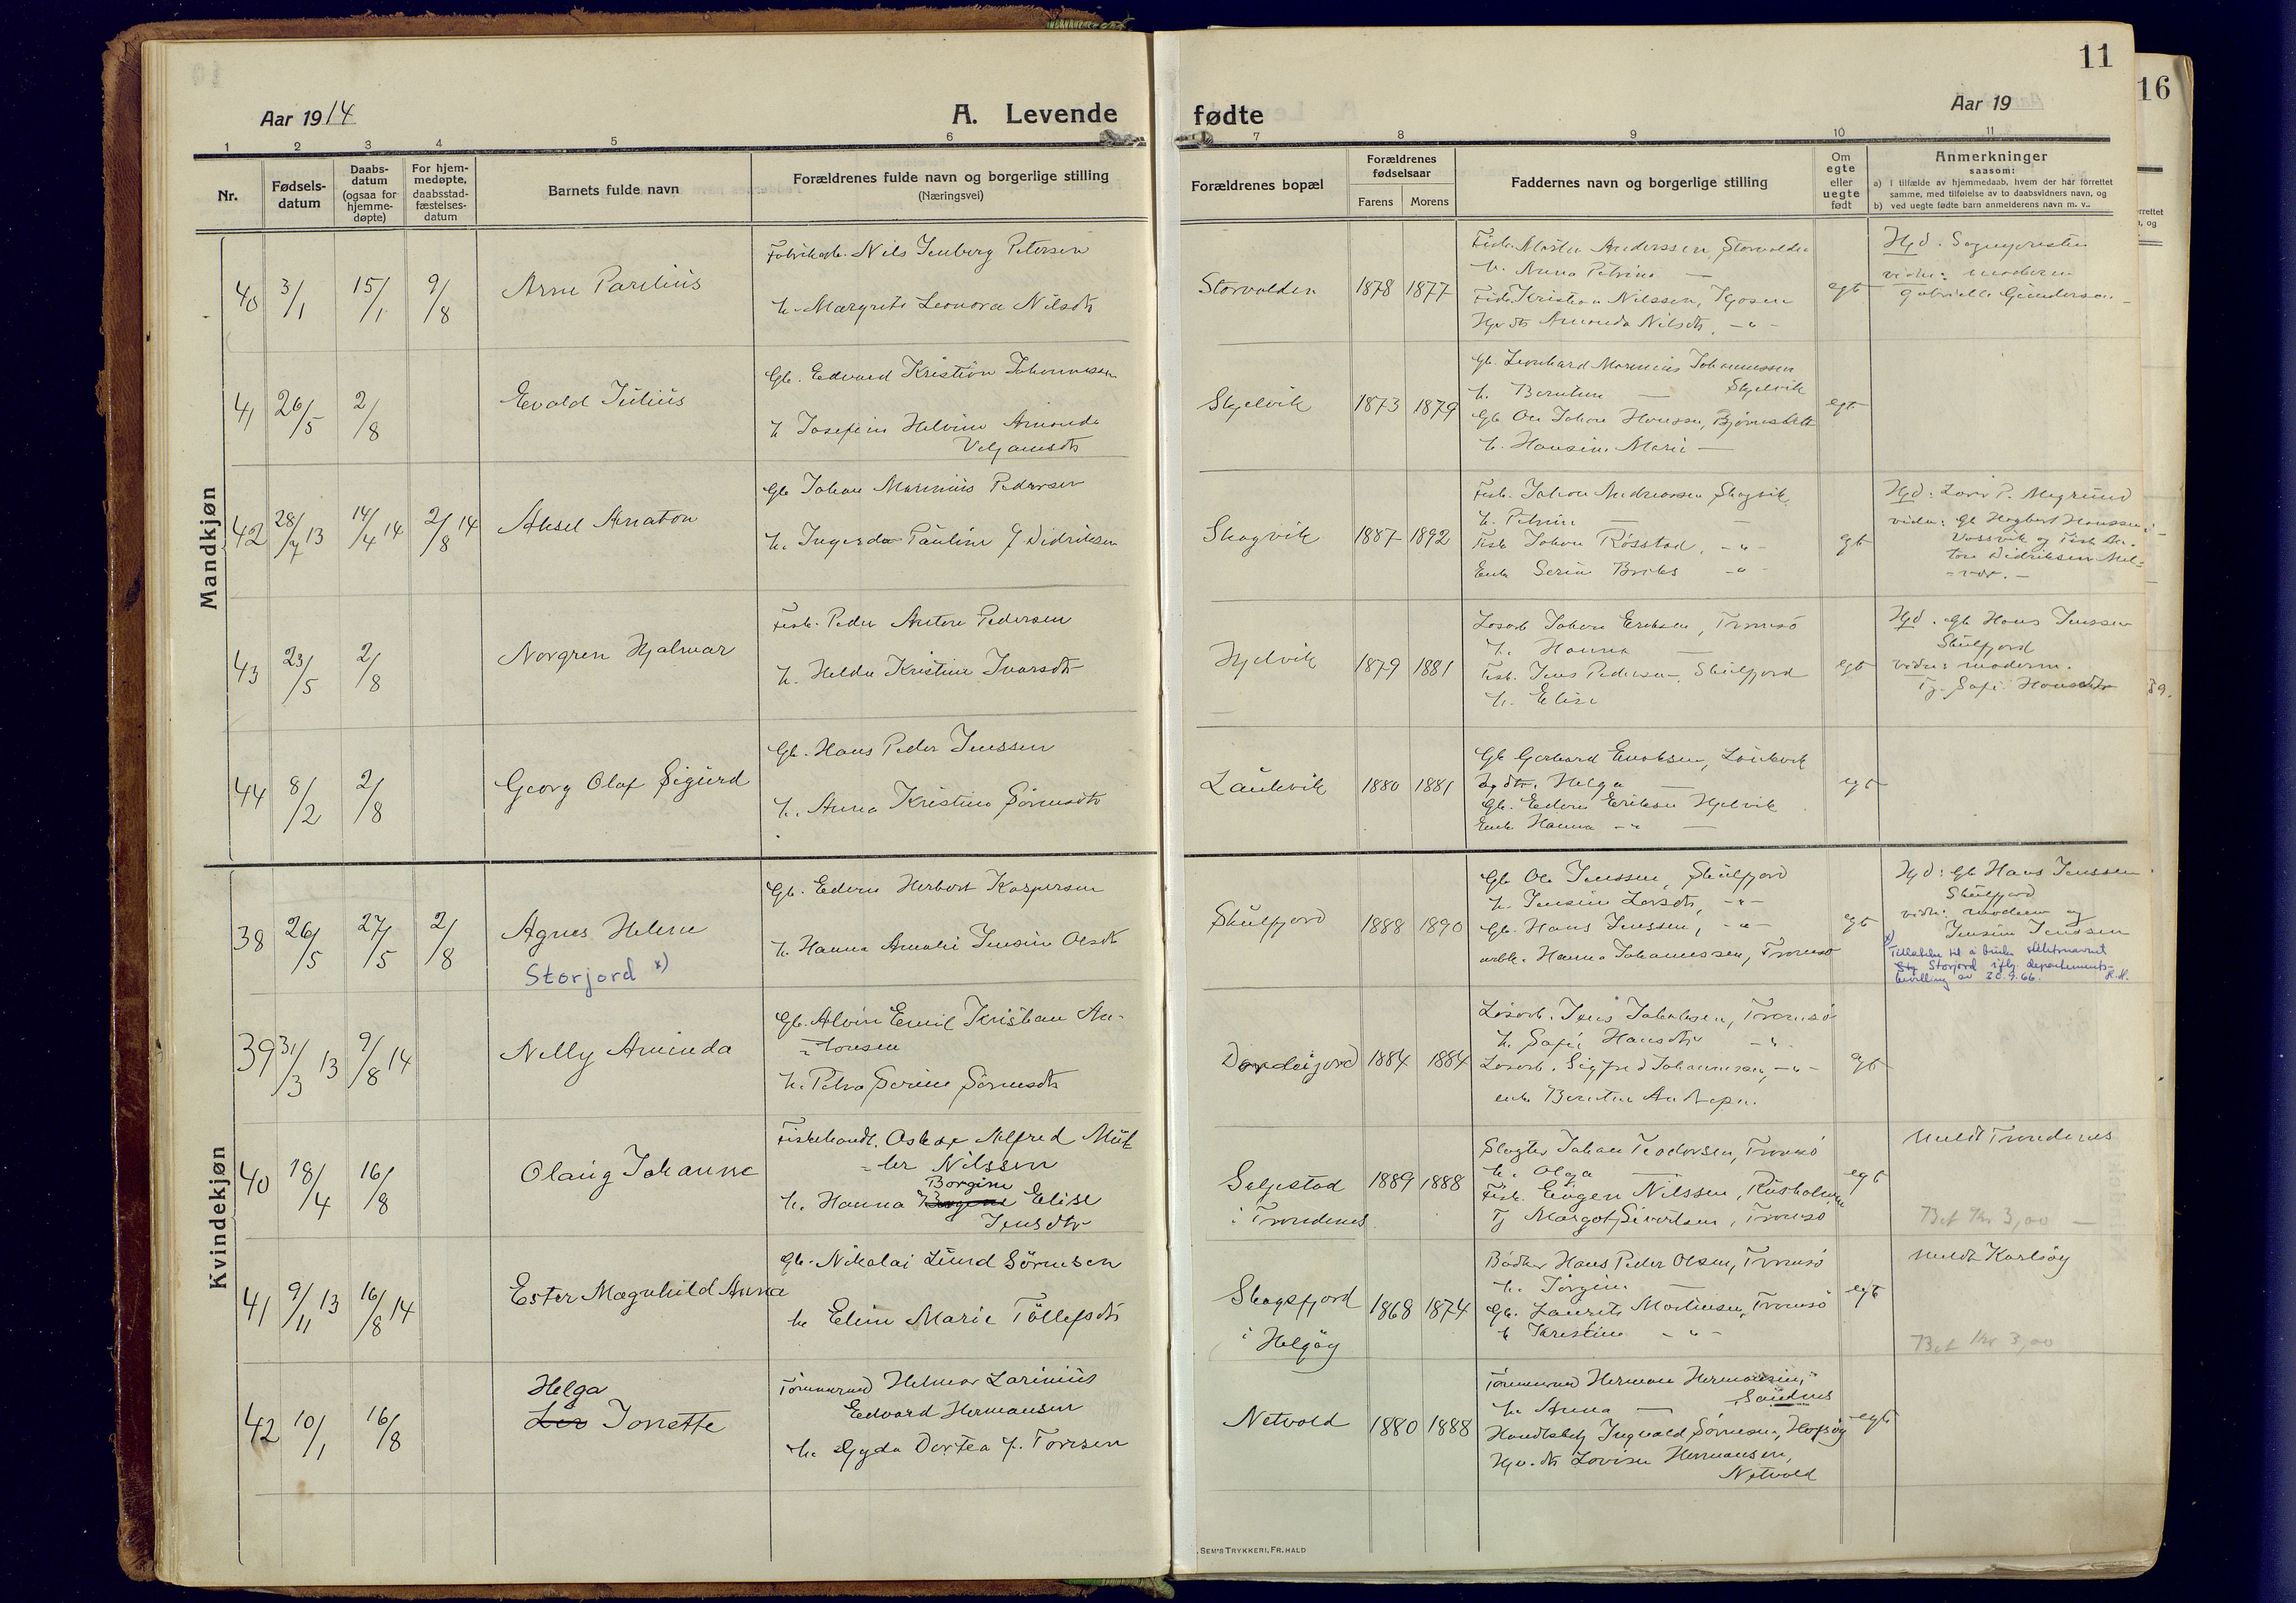 11
16
Aar 1914
A. Levende
fødte
Aar 19
1 2 3 4 5 6 7 8 9 10 11
Nr.
Fødsels-
datum
Daabs-
datum
(ogsaa for
hjemme-
døpte)
For hjem-
medøpte,
daabsstad-
fæstelses-
datum
Barnets fulde navn
Forældrenes fulde navn og borgerlige stilling
(Næringsvei)
Forældrenes bopæl
Forældrenes
fødselsaar
Farens Morens
Faddernes navn og borgerlige stilling
Om
egte
eller
uegte
født
Anmerkninger
saasom:
a) i tilfælde av hjemmedaab, hvem der har forrettet
samme, med tilføielse av to daabsvidners navn, og
b) ved uegte fødte barn anmelderens navn m. v.
Mandkjøn
40 3/1 15/1 9/8
Arne Parelius
Nils Jenberg Petersen
h. Margrete Leonora Nilsdtr
Storvolden
1878 1877
Fisk. Martin Anderssen, Storvolden
h. Anna Petrine —
Fisk. Kristian Nilssen, Kjosen
Amanda Nilsdtr. -"-
egt
Hjd: Sognepresten
vidn: moderen
Gabrielle Gundersen
41 26/5 2/8
Evald Julius
Gb. Edvard Kristian Johannessen
h. Josefine Helvine Amanda
Skjelvik
1873 1879
Gb. Leonhard Marenius Johannessen
h. Berntine — Skjelvik
Gb Ole Johan Hanssen,
h. Hansine Marie —
egt
42 28/7 13 14/4 14 2/8 14
Aksel Anaton
Gb Johan Marenius Pedersen
h. Pauline f. Didriksen
Skogvik
1887 1892
Fisk. Johan Andreassen Skogvik
h. Petrine —
Fisk Johan Røsstad, -"-
Enke Serine Briks -"-
egt
Hjd: Lars P. Megrund
vidn: Gb Hagbart Hanssen
Vassvik og Fisk An-
ton Didriksen Mel-
- vær. -
43 23/5 2/8
Norgren Hjalmar
Fisk. Peder Anton Pedersen
h. Helda Kristine Ivarsdtr
Hjelvik
1879 1881
Løsarb Johan Eriksen, Tromsø
h. Hanna —
Fisk. Jens Pedersen, Skulfjord
h. Elise
egt
Hjd. Gb Hans Jenssen
Skulfjord
vidn: moderen.
Tj. Sofie Hansdtr
44 8/2 2/8
Georg Olaf Sigurd
Gb. Hans Peder Jenssen
h. Anna Kristine Sørensdtr
Laukvik
1880 1881
Gb Gerhard Enoksen, Laukvik
Helga —
Gb. Edvin Eriksen Hjelvik
Enke Hanna -"- —
egt
Kvindekjøn
38 26/5 27/5 2/8
Agnes Helene
Storjord x)
Gb. Edvin Herbort Kaspersen
h. Hanna Amalie Jensine Olsdtr
Skulfjord
1888 1890
Gb Ole Jenssen, Skulfjord
h. Jensine Larsdtr, -"-
Gb. Hans Jenssen, -"-
Hanna Johannessen, Tromsø
egt
Hjd: Gb Hans Jenssen
Skulfjord
vidn: moderen og
Jensine Jenssen
x)
Tillatelse til å bruke slektsnavnet
Storjord iflg. departements-
bevilling av 20.9.66. H.H.
39 31/3 13 9/8 14
Nelly Aminda
Gb. Alvin Emil Kristian An-
- tonsen
h. Petra Serine Sørensdtr
1884 1884
Løsarb. Jens Jakobsen, Tromsø
h. Sofie Hansdtr -"-
Løsarb. Sigfred Johannessen, -"-
enke Berntine
egt
40 18/4 16/8
Olaug Johanne
Fiskehandl. Oskar Alfred Mül
- ler Nilssen
Borgine
h. Hanna Elise
Jensdtr
Seljestad
i Trondenes
1889 1888
Slagter Johan Teodorsen, Tromsø
h. Olga —
Fisk. Eugen Nilssen,
Tj Margot Sivertsen, Tromsø
egt
Meldt Trondenes
Bet Kr 3,00 —
41 9/11 13 16/8 14
Ester Magnhild Anna
Gb. Nikolai Lund Sørensen
h. Eline Marie Tollefsdtr
Skogsfjord
i Helgøy
1868 1874
Bødker Hans Peder Olsen, Tromsø
h. Jørgine —
Gb. Laurits Martinsen, Tromsø
h Kristine - " -
egt
Meldt Karlsøy
Bet Kr 3,00
42 10/1 16/8
Helga
Jonette
Tømmermd Helmar Larinius
Edvard Hermansen
h. Gyda Dortea f. Toresen
Netvold
1880 1888
Tømmermd Herman Hermansen,
h. Anna — Sandnes
Ingvald Sørensen,
Lovise Hermansen,
Netvold
egt
SEM'S TRYKKERI, FR. HALD